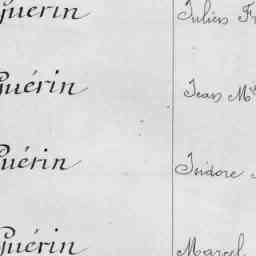 Guérin Julien F
Guérin Jean M
Guérin Isidore
Guérin Marcel